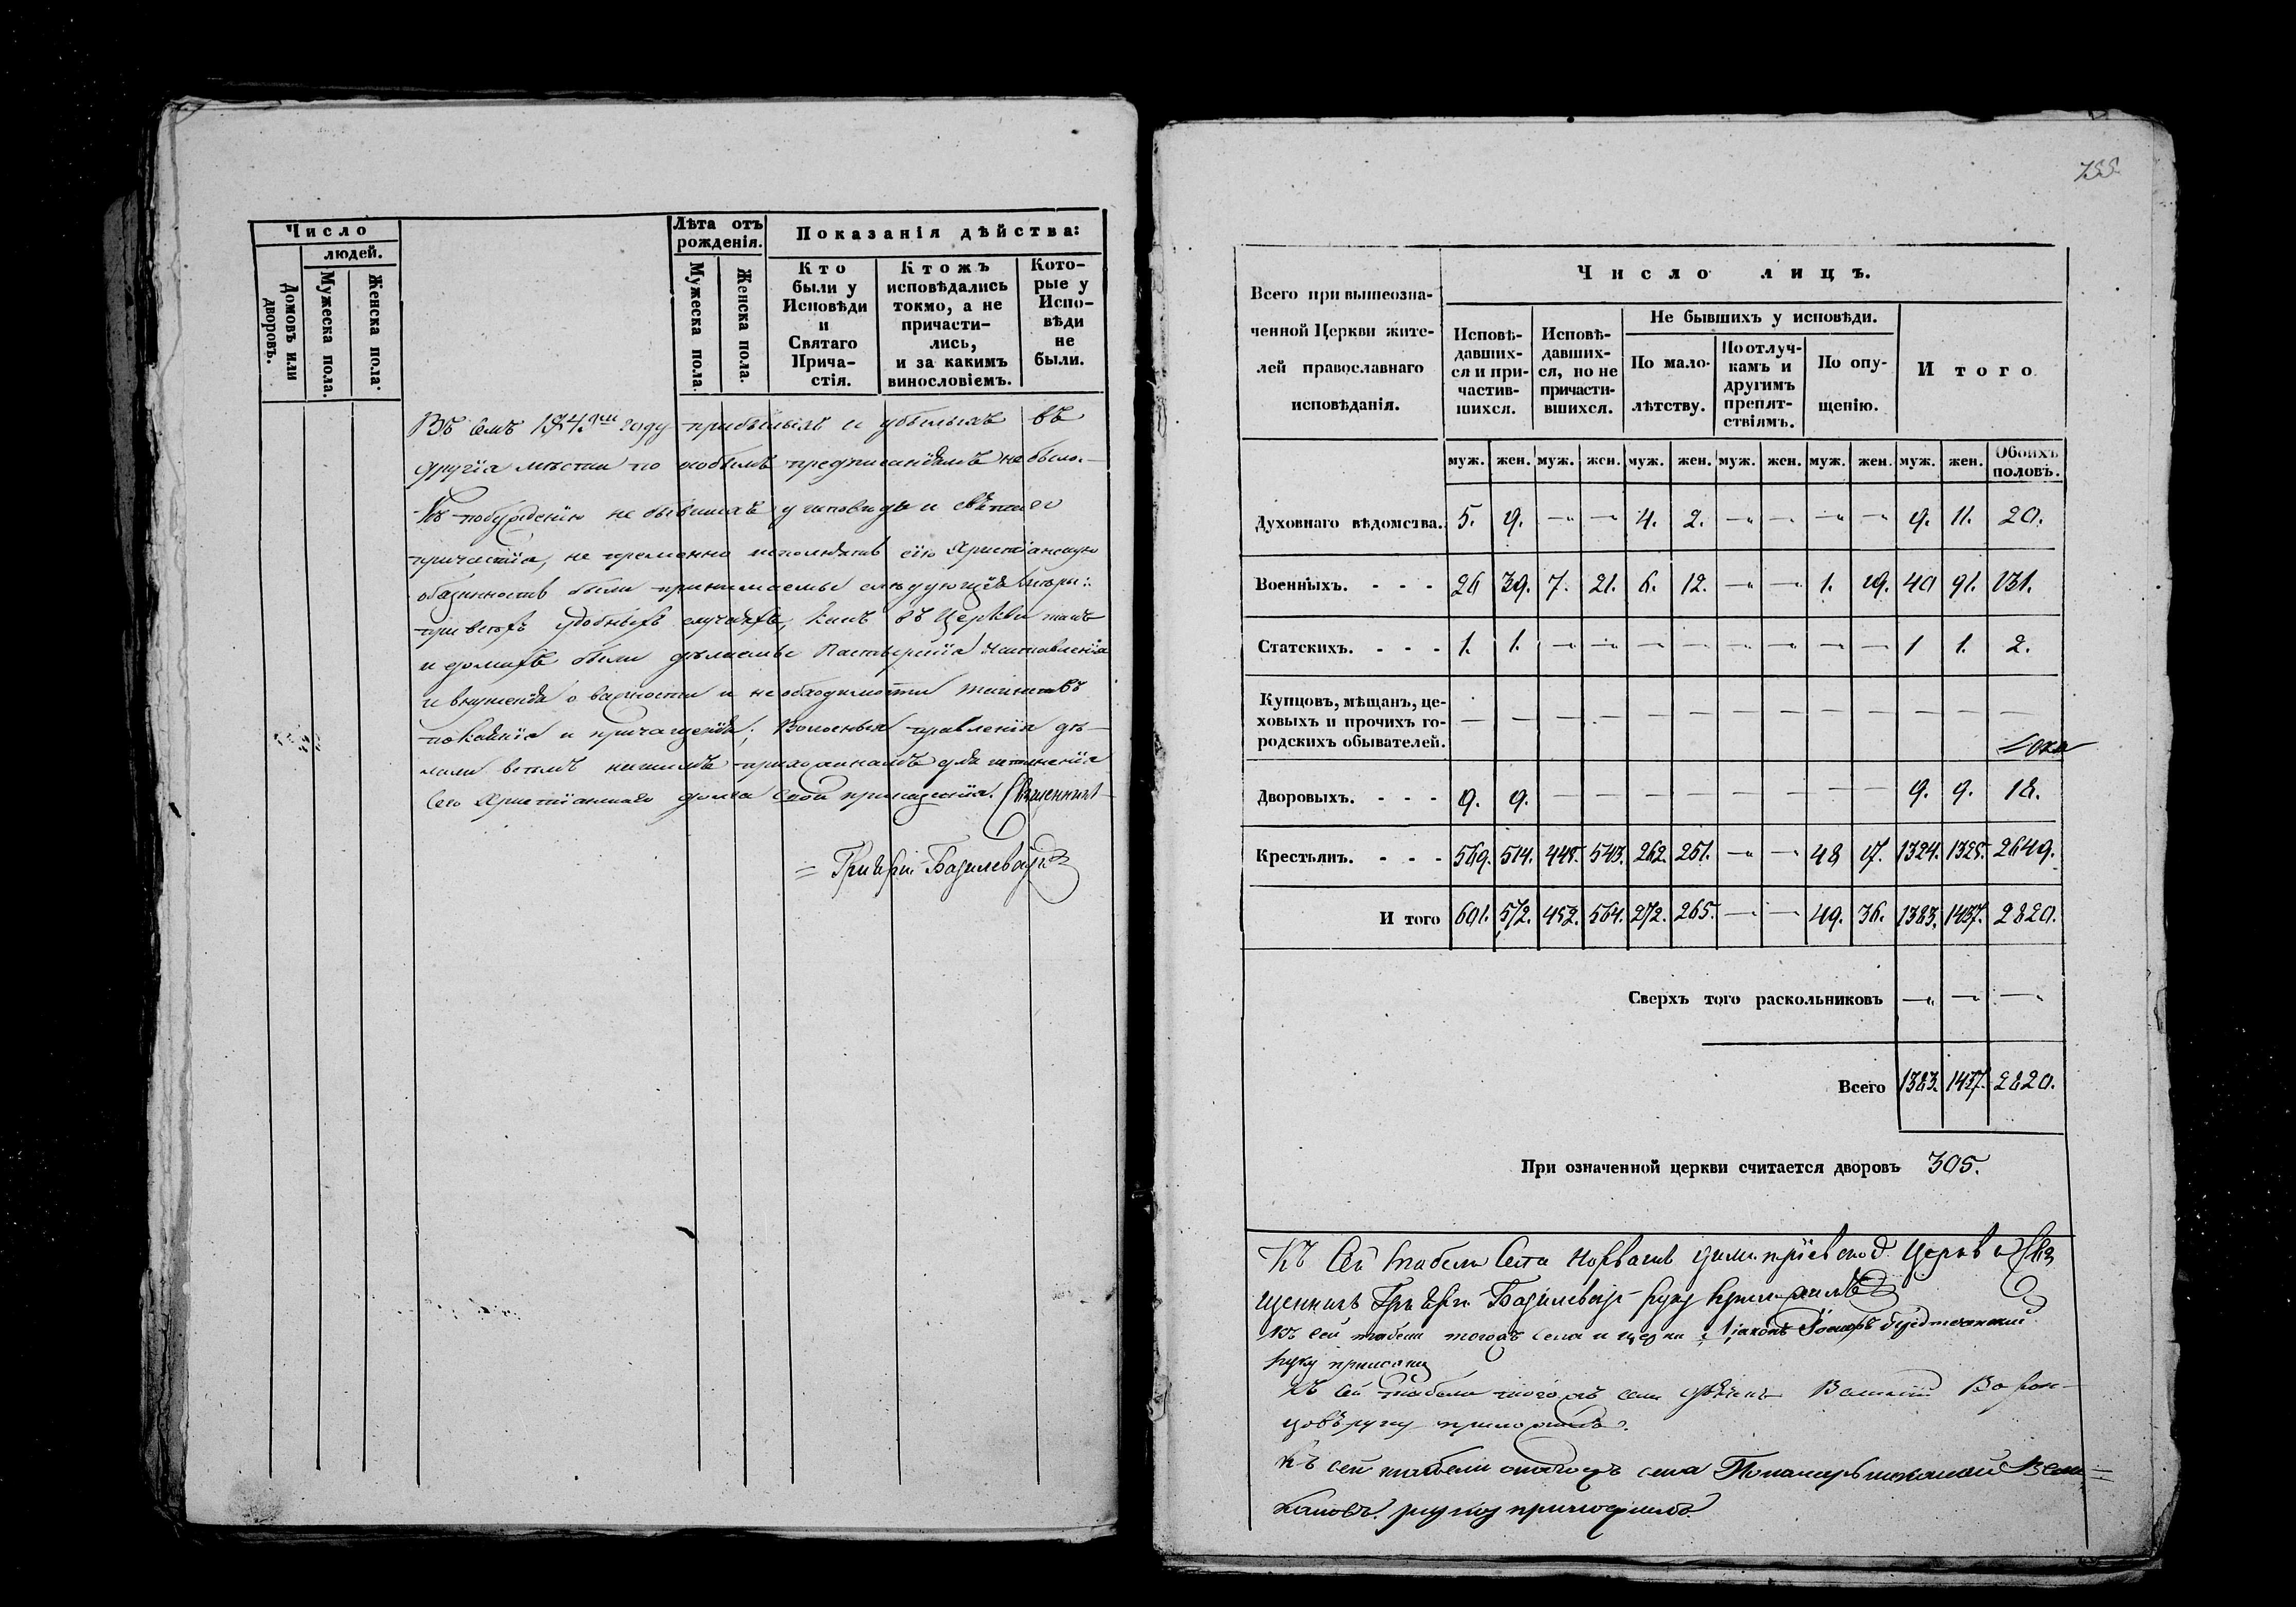 Число
людей.
Домовъ или дворовъ.
Мужеска пола.
Женска пола.
Лѣта отъ рожденія.
Мужеска пола.
Женска пола.
Показанія дѣйства:
Кто были у Исповѣди и Святаго Прича-стія.
Ктожъ исповѣдались токмо, а не причасти-лись, и за какимъ винословіемъ.
Кото-рые у Испо-вѣди не были.
Въ семъ году прибылыхъ и убылыхъ въ
другіа мѣста по особымъ предписаніямъ не было.
Къ побужденію не бывшихъ у исповѣди и святаго
причастіа, не премѣнно исполнять сію Христіанскую
обязанность были принимаемы слѣдующіа мѣры:
при всѣхъ удобныхъ случаяхъ, какъ въ Церкви такъ
и домахъ были дѣлаемы Пастырскіа Наставленіа
и внушеніа о важности и необходимости таинствъ
покаяніа и причащеніа; Волосныа правленіа дѣ-
лали всѣмъ нашимъ прихожанамъ для исполненіа
сего Христіанскаго долга свои принужденіа. Священникъ
Григорій Базилевичъ
755.
Всего при вышеозна-ченной Церкви жите-лей православнаго исповѣданія.
Число лицъ.
Исповѣ-давших-ся и при-частив-шихся.
Исповѣ-давших-ся, но не причасти-вшихся.
Не бывшихъ у исповѣди.
По мало-лѣтству.
По отлуч-камъ и другимъ препят-ствіямъ.
По опу-щенію.
Итого
муж. жен. муж. жен. муж. жен. муж. жен. муж. жен. муж. жен. Обоихъ половъ.
Духовнаго вѣдомства. 5. 9. — — 4. 2. — — — — 9. 11. 20.
Военныхъ. - - - 26 39. 7. 21. 6. 12. — — 1. 19. 40 91. 131.
Статскихъ. - - - 1. 1. — — — — — — — — 1 1. 2.
Купцовъ, мѣщанъ, це-
ховыхъ и прочихъ го-
родскихъ обывателей. — — — — — — — — — — — — —
Дворовыхъ. - - - 9. 9. — — — — — — — — 9. 9. 18.
Крестьянъ. - - - 569. 514. 445. 543. 262. 251. — — 48 17. 1324. 1325. 2649.
И того 601. 572. 452. 564. 272. 265. — — 49. 36. 1383. 1437. 2820.
Сверхъ того раскольниковъ — — —
Всего 1383. 1437. 2820.
При означенной церкви считается дворовъ 305.
Къ Сей табели Села Димитріевской Церкви Свя
щенникъ Григорій Базилевичъ руку приложилъ
Къ сей табели тогожъ села и церкви Діаконъ
руку
Къ сей табели тогожъ села Василій Ворон-
цовъ руку приложилъ.
Къ сей табели тогожъ села Пономарь Николай
руку приложилъ